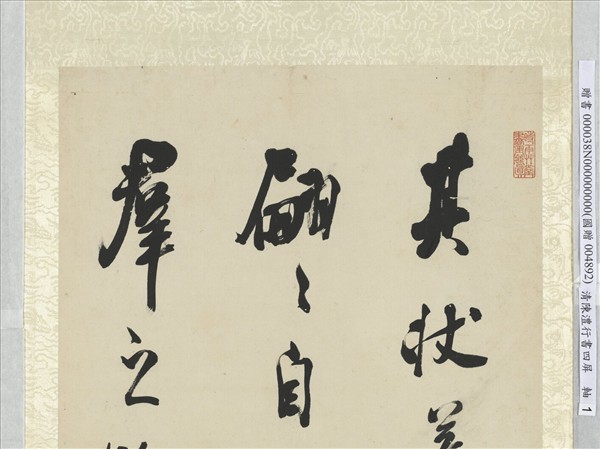 贈書 000038N000000000(國贈 004892) 清陳澧行書四屏 軸 1
其狀
翩〻自
羣之